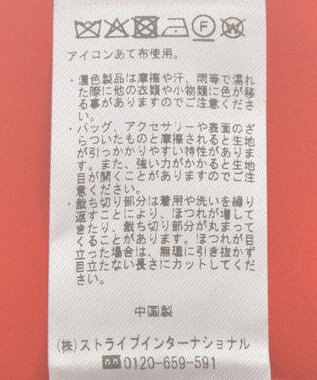 アイロンあて布使用。
・濃色製品は摩擦や汗、雨等で濡れ
た際に他の衣類や小物類に色が移
る事がありますのでご注意くださ
い。
・バッグ、アクセサリーや表面のざ
らついたものと摩擦されると生地
が引っかかりやすい特性がありま
す。また、強い力がかかると生地
目が開くことがありますのでご注
意ください。
・裁ち切り部分は着用や洗いを繰り
返すことにより、ほつれが増して
きたり、裁ち切り部分が丸まって
くることがあります。ほつれが目
立った場合は、無理に引き抜かず
目立たない長さにカットしてくだ
さい。
中国製
(株)ストライプインターナショナル
0120-659-591